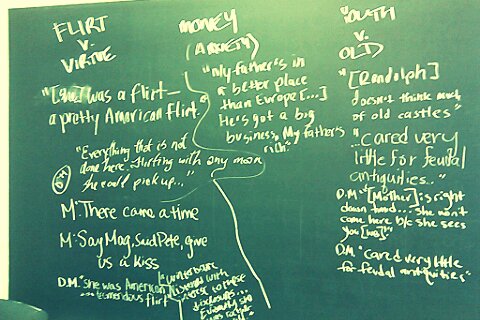 FLIRT
V.
VIRTUE
"[She] was a flirt—
a pretty American flirt."
"Everything that is not
done here. flirting with any man
she could pick up..."
M: There came a time
M: Say Mag, said Pete, give
us a kiss
D.M. "she was American
tremendous flirt"
MONEY
(ANXIETY)
"My father's in
a better place
than Europe [...]
He's got a big
business. My father's
rich."
YOUTH
V.
OLD
"[Randolph]
doesn't think much
of old castles"
"...cared very
little for feudal
antiquities..."
D.M. "[Mother] is right
down ... she won't
come here b/c she sees
you
D.M. "cared very little
for feudal antiquities"